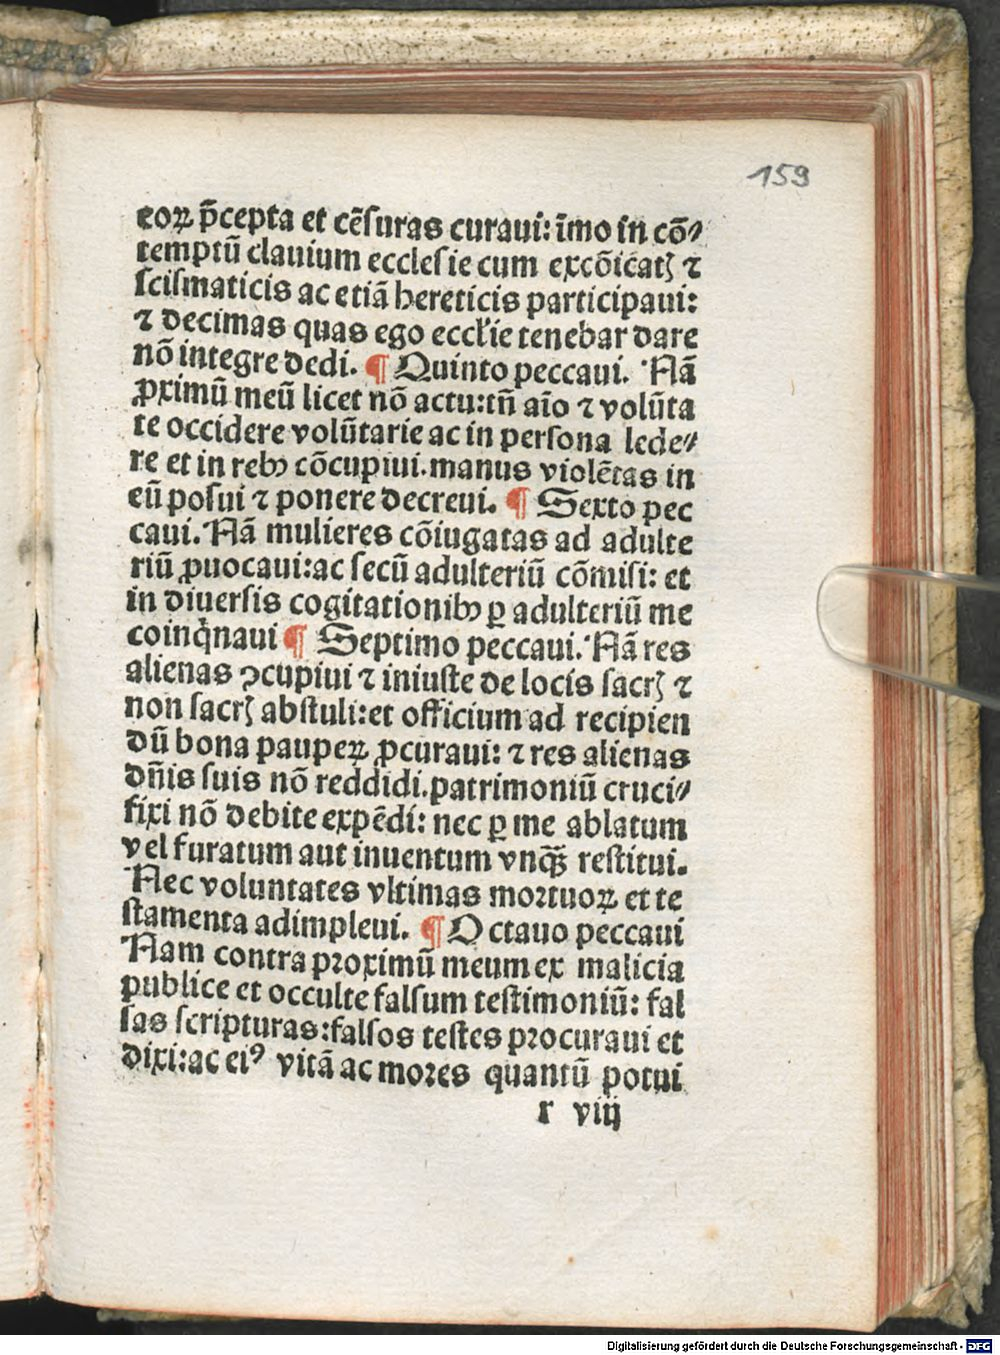 159
eoꝝ p̄cepta et cēſuras curaui: īmo in cō⸗
temptū clauium eccleſie cum excōicatꝭ ⁊
ſciſmaticis ac etiā hereticis participaui:
⁊ decimas quas ego eccl'ie tenebar dare
nō integre dedi. ¶ Quinto peccaui. Nā
ꝓximū meū licet nō actu:tn̄ aīo ⁊ volūta
te occidere volūtarie ac in perſona lede⸗
re et in rebꝰ cōcupiui.manus violētas in
eū poſui ⁊ ponere decreui. ¶ Sexto pec
caui. Nā mulieres cōiugatas ad adulte
riū ꝓuocaui:ac ſecū adulteriū cōmiſi: et
in diuerſis cogitationibꝰ ꝑ adulteriū me
coinq̇naui ¶ Septimo peccaui. Nā res
alienas ꝯcupiui ⁊ iniuſte de locis ſacrꝭ ⁊
non ſacrꝭ abſtuli:et officium ad recipien
dū bona pauperꝝ ꝓcuraui: ⁊ res alienas
dn̄is ſuis nō reddidi.patrimoniū cruci⸗
fixi nō debite expēdi: nec ꝑ me ablatum
vel furatum aut inuentum vnqꝫ̄ reſtitui.
Nec voluntates vltimas moꝛtuoꝝ et te
ſtamenta adimpleui. ¶ Octauo peccaui
Nam contra pꝛoximū meum ex malicia
publice et occulte falſum teſtimoniū: fal
ſas ſcripturas:falſos teſtes pꝛocuraui et
dixi:ac eiꝰ vitā ac moꝛes quantū potui
r viij
Digitalisierung gefördert durch die Deutsche Forschungsgemeinschaft - DFG